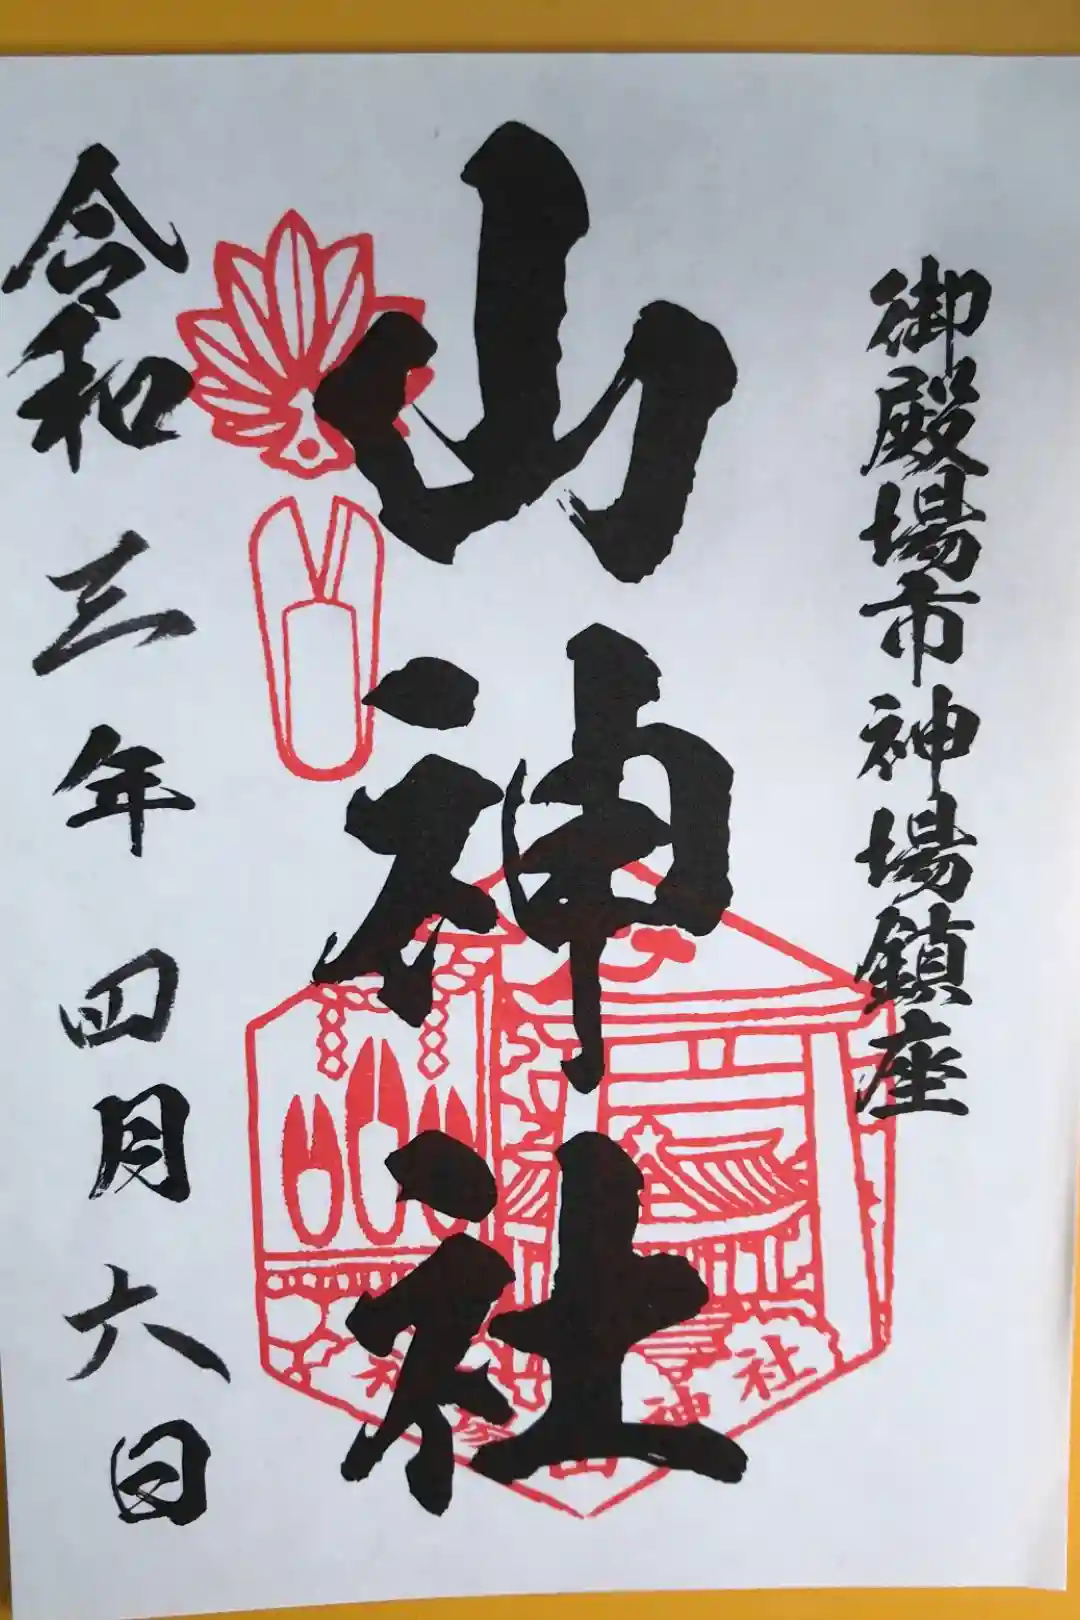 御殿場市神場鎮座
山神社
令和三年四月六日
山神社